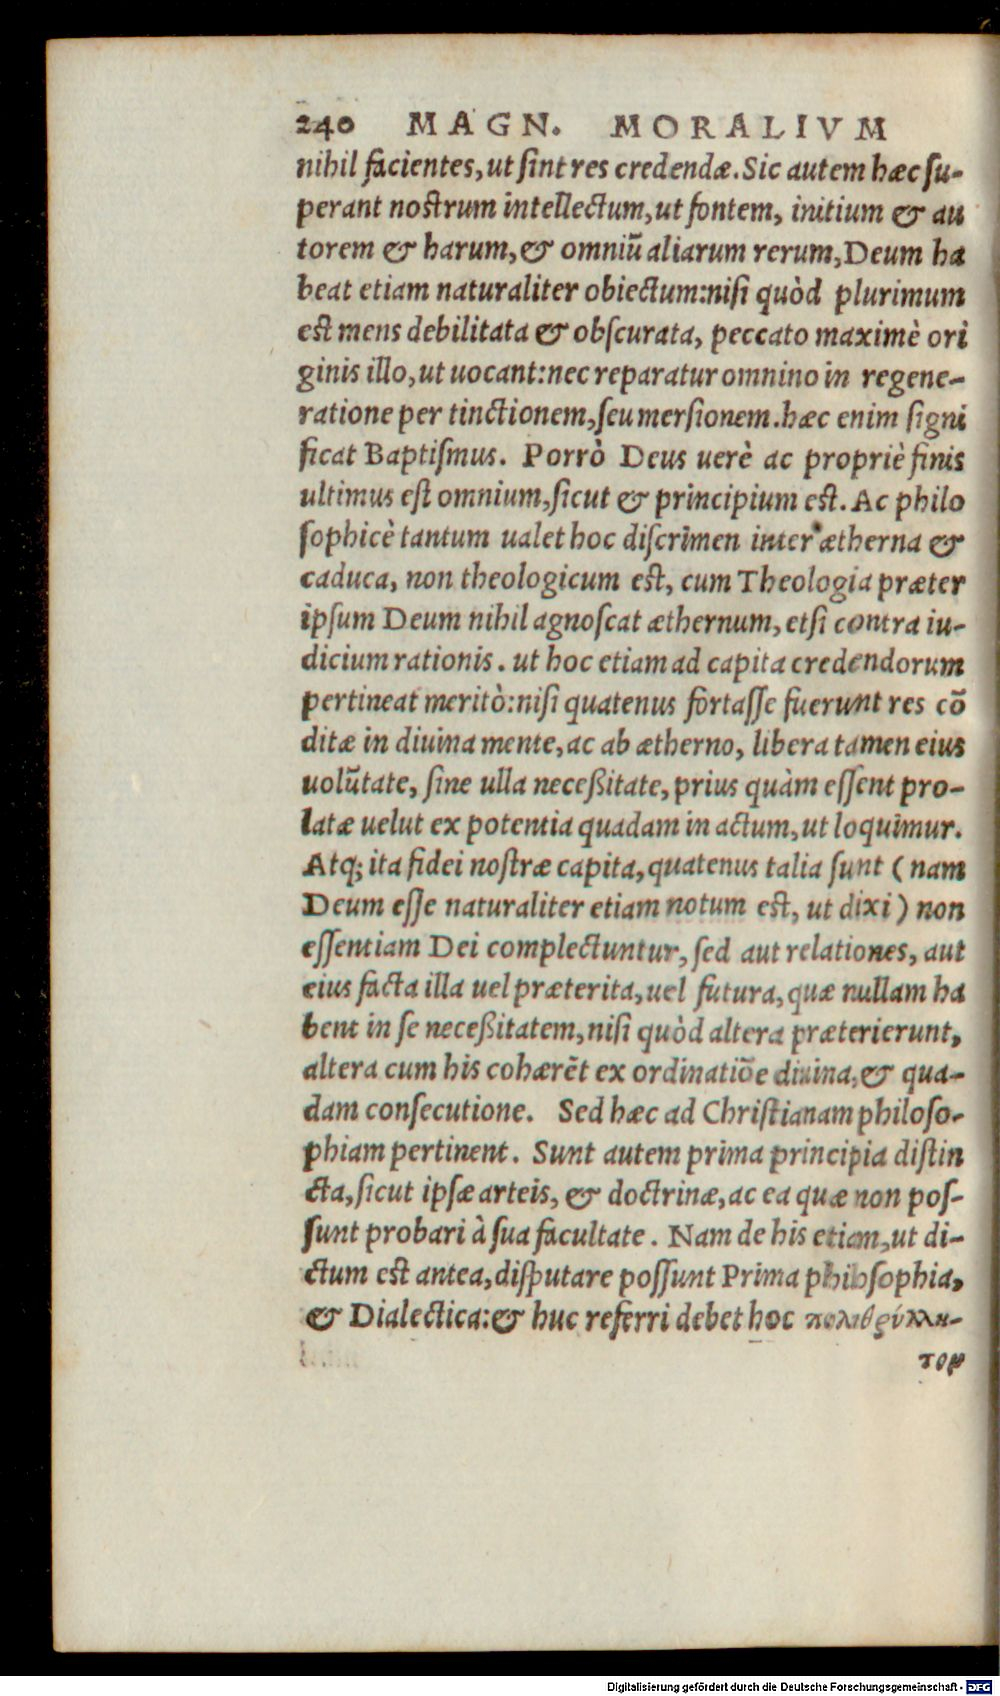 240 MAGN. MORALIVM
nihil facientes, ut ſint res credendæ. Sic autem hæc ſu-
perant noſtrum intellectum, ut fontem, initium & au
torem & harum, & omniũ aliarum rerum, Deum ha
beat etiam naturaliter obiectum: niſi quòd plurimum
eſt mens debilitata & obſcurata, peccato maximè ori
ginis illo, ut uocant: nec reparatur omnino in regene-
ratione per tinctionem, ſeu merſionem. hæc enim ſigni
ficat Baptiſmus. Porrò Deus uerè ac propriè finis
ultimus eſt omnium, ſicut & principium eſt. Ac philo
ſophicè tantum ualet hoc diſcrimen inter ætherna &
caduca, non theologicum eſt, cum Theologia præter
ipſum Deum nihil agnoſcat æthernum, etſi contra iu-
dicium rationis. ut hoc etiam ad capita credendorum
pertineat meritò: niſi quatenus fortaſſe fuerunt res cõ
ditæ in diuina mente, ac ab ætherno, libera tamen eius
uolũtate, ſine ulla neceßitate, prius quàm eſſent pro-
latæ uelut ex potentia quadam in actum, ut loquimur.
Atq; ita fidei noſtræ capita, quatenus talia ſunt (nam
Deum eſſe naturaliter etiam notum eſt, ut dixi) non
eſſentiam Dei complectuntur, ſed aut relationes, aut
eius facta illa uel præterita, uel futura, quæ nullam ha
bent in ſe neceßitatem, niſi quòd altera præterierunt,
altera cum his cohærẽt ex ordinatiõe diuina, & qua-
dam conſecutione. Sed hæc ad Chriſtianam philoſo-
phiam pertinent. Sunt autem prima principia diſtin
cta, ſicut ipſæ arteis, & doctrinæ, ac ea quæ non poſ-
ſunt probari à ſua facultate. Nam de his etiam, ut di-
ctum eſt antea, diſputare poſſunt Prima philoſophia,
& Dialectica: & huc referri debet hoc πολιθρύλλη-
τον
Digitalisierung gefördert durch die Deutsche Forschungsgemeinschaft - DFG